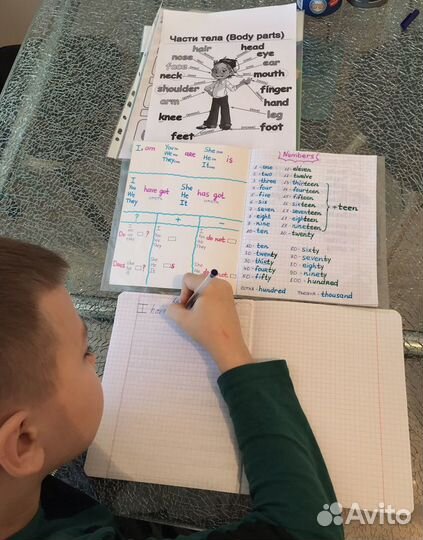 Части тела (Body parts)
hair
head
nose
eye
face
ear
neck
mouth
shoulder
finger
arm
hand
knee
leg
feet
foot
I am
You
We
They
are
She
He
It
is
I
You
We
They
have got
She
He
It
has got
? + -
Do
I
You
We
They
do not
Does
She
He
It
?
s
Numbers
1 - one 11 - eleven
2 - two 12 - twelve
3 - three 13 - thirteen
4 - four 14 - fourteen
5 - five 15 - fifteen
6 - six 16 - sixteen
7 - seven 17 - seventeen
8 - eight 18 - eighteen
9 - nine 19 - nineteen
10 - ten 20 - twenty
+ teen
10 - ten 60 - sixty
20 - twenty 70 - seventy
30 - thirty 80 - eighty
40 - fourty 90 - ninety
50 - fifty 100 - hundred
сотня - hundred тысяча - thousand
I have
Avito